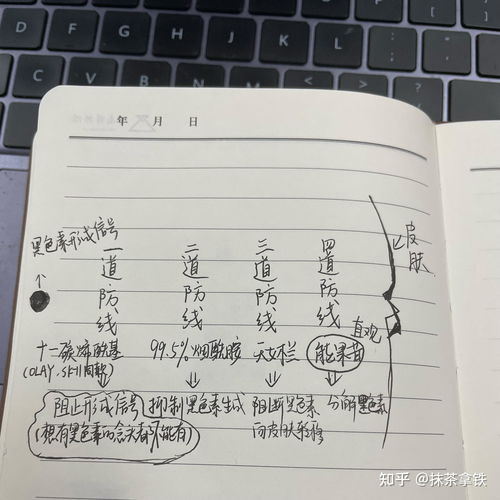 年 月 日
黑色素形成信号
一道防线
二道防线
三道防线
四道防线
皮肤
直观
十二碳烯酰基
(OLAY、SK-II同款)
99.5%烟酰胺
天女木兰
能果苷
阻止形成信号
(想有黑色素的念头都不能有)
抑制黑色素生成
阻断黑色素
向皮肤转移
分解黑色素
知乎 @抹茶拿铁